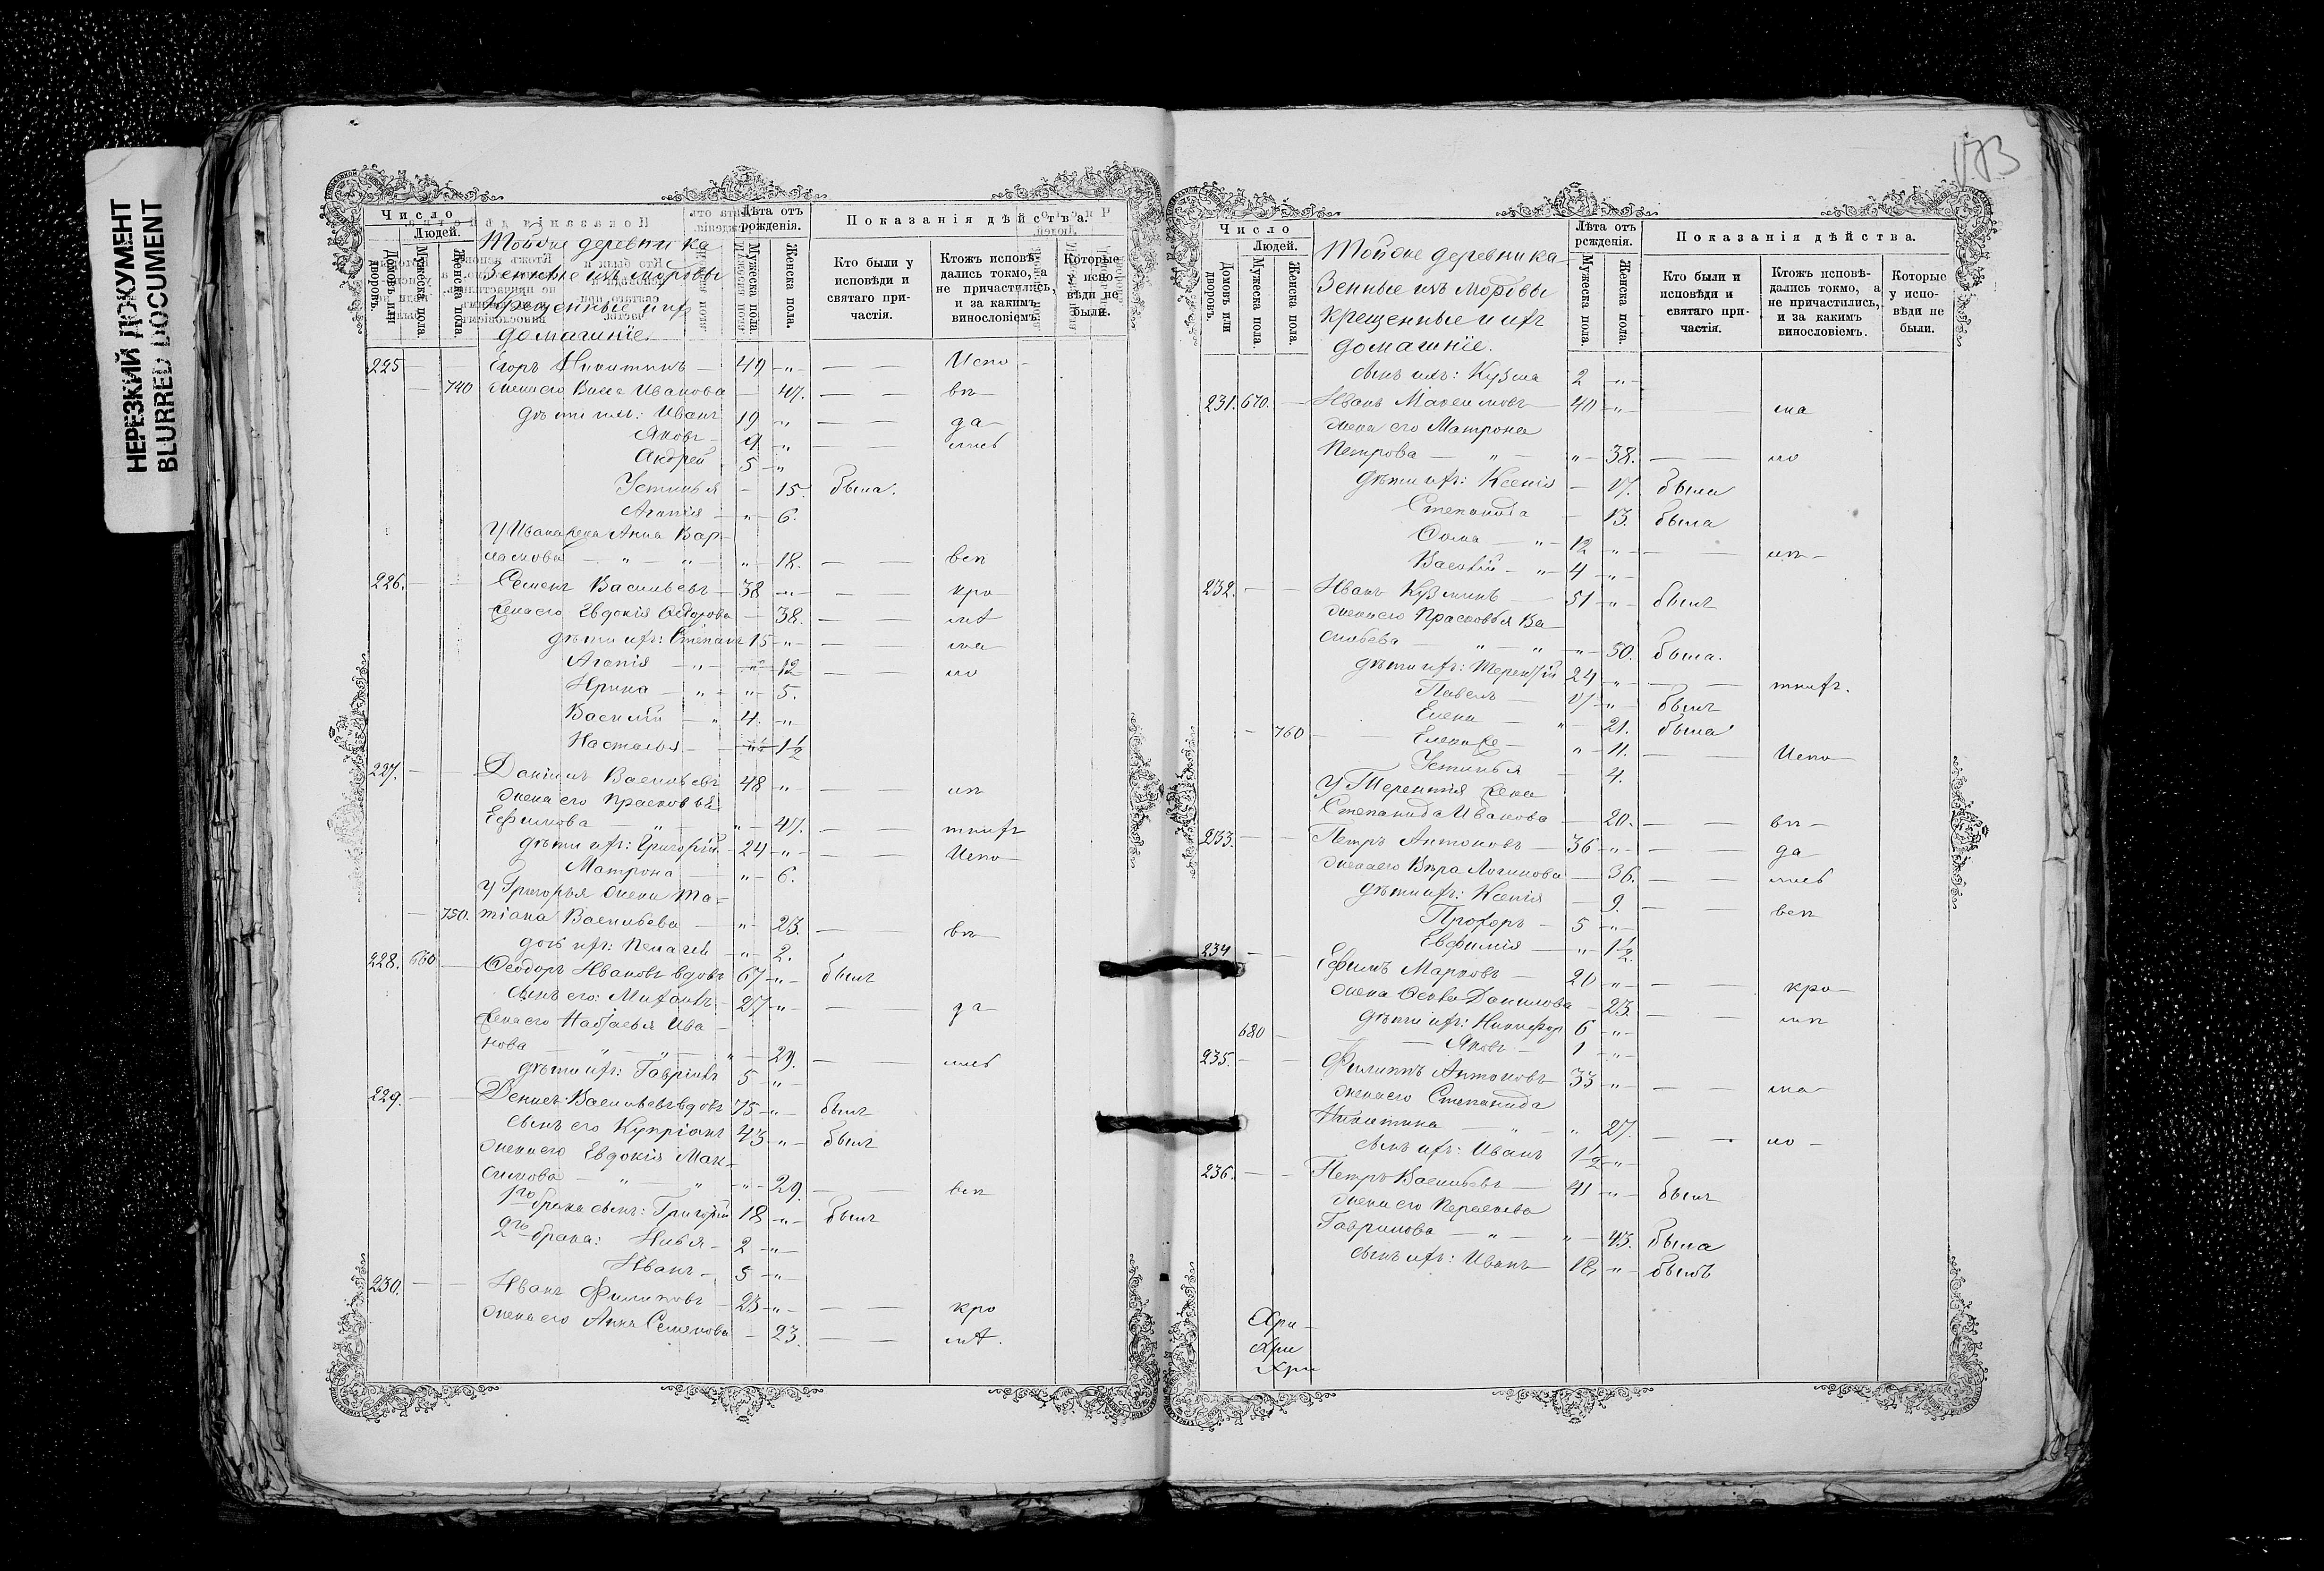 НЕРЕЗКИЙ ДОКУМЕНТ
BLURRED DOCUMENT
173
Число
Людей.
Домовъ или дворовъ.
Мужеска пола.
Женска пола.
Тойже деревни ка-
зенные изъ мордвы
крещенные и ихъ
домашніе.
Лѣта отъ рожденія.
Мужеска пола.
Женска пола.
Показанія дѣйства.
Кто были у исповѣди и святаго при-частія.
Ктожъ исповѣ-дались токмо, а не причастились, и за какимъ винословіемъ.
Которые у испо-вѣди не были.
225 — Егоръ Никитинъ — 49 — „ — Испо-
740 жена его Иванова — 47. — вѣ-
дѣти ихъ: Иванъ 19 „ — да-
Яковъ — 9 „ —
Андрей 5 „
Устинья — 15. была.
Агапія — „ — 6.
У Ивана жена Анна Вар-
ламова — „ — „ — 18. — всп
226. — Семенъ Васильевъ — 38 — „ — кро
жена его Евдокія Ѳедорова — 38. —
дѣти ихъ: Степанъ 15 „ — ма-
Агапія — „ — 12 — ло
Ирина — „ — „ — 5.
Василій — „ 4. — „ —
Настасья — 1½
227. — Даніилъ Васильевъ 48 — „ —
жена его Прасковья
Ефимова — „ — „ — 47. —
дѣти ихъ: Григорій — 24 — „ — Испо-
Матрона — „ — 6.
У Григорья жена Та-
750. тіана Васильева — „ — 23. — вѣ-
дочь ихъ: Пелагея — „ — 2.
228. 660 — Ѳеодоръ Ивановъ вдовъ 67 — „ — былъ
сынъ его: Михаилъ — 27 — „ — да
жена его Ива-
нова — „ — „ — „ — 29. —
дѣти ихъ: Гавріилъ 5 — „ —
229. — Денисъ Васильевъ вдовъ 75 — „ — былъ
сынъ его Купріанъ 43 — „ — былъ
жена его Евдокія Мак-
симова — „ — „ — „ — 29. — всп
1го брака сынъ: Григорій 18 — „ — былъ
2го брака: Илья — 2 — „ —
Иванъ — 5 — „ —
230. — Иванъ Филиповъ — 23 — „ — кро
жена его Анна Семенова — 23. —
Число
Людей.
Домовъ или дворовъ.
Мужеска пола.
Женска пола.
Тойже деревни ка-
зенные изъ мордвы
крещенные и ихъ
домашніе.
Лѣта отъ рожденія.
Мужеска пола.
Женска пола.
Показанія дѣйства.
Кто были и исповѣди и святаго при-частія.
Ктожъ исповѣ-дались токмо, а не причастились, и за какимъ винословіемъ.
Которые у испо-вѣди не были.
сынъ ихъ: Кузма 2 — „ —
231. 670. — Иванъ Максимовъ — 40 — „ — ма
жена его Матрона
Петрова — „ — „ — 38. — ло
дѣти ихъ: Ксенія — 17. была
Степанида — 13. была
Ѳома — „ — 12 — „ —
Василій — „ — 4 — „ —
232. — Иванъ Кузминъ — 51 — „ — былъ
жена его Прасковья Ва-
сильева — „ — „ — „ — 50. была.
дѣти ихъ: Терентій 24 — „ —
Павелъ — 17 — „ — былъ
Елена — „ — 21. была
760 — Елена же — „ — 11. — Испо-
Устинья — 4.
У Терентія жена
Степанида Иванова — 20. — вѣ-
233. — Петръ Антоновъ — 36 — „ — да
жена его Вѣра Логинова — 36. —
дѣти ихъ: Ксенія — 9. — всп
Прохоръ — 5 — „ —
Евфимія — „ — 1½.
234 — Ефимъ Марковъ — 20 — „ — кро-
жена Данилова — 23. —
дѣти ихъ: Никифор 6 — „ —
680 — Яковъ — 1 — „ —
235. — Филиппъ Антоновъ 33 — „ — ма-
жена его Степанида
Никитина — „ — „ 27. — ло-
сынъ ихъ: Иванъ 1½ — „ —
236. — Петръ Васильевъ — 41 — „ — былъ
жена его
Гаврилова — „ — „ — 43. была
сынъ ихъ: Иванъ 18 — „ — былъ
Хри-
Хри
Хри